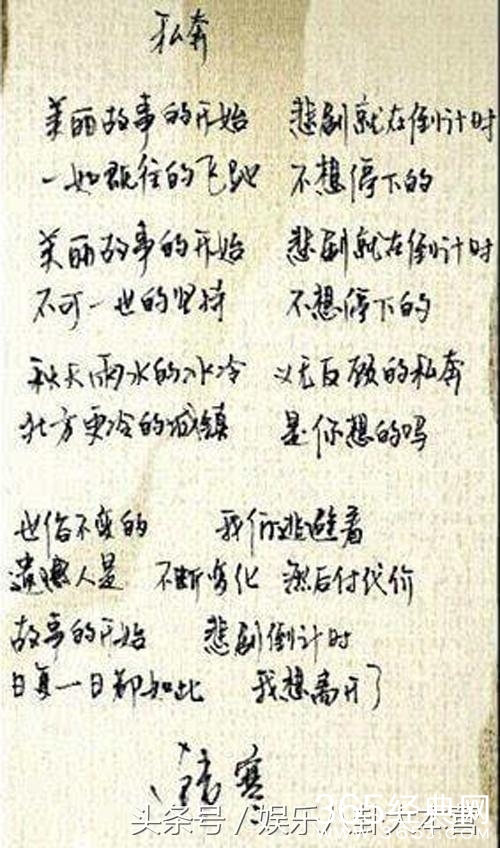 私奔
美丽故事的开始 悲剧就在倒计时
一如既往的飞驰 不想停下的
美丽故事的开始 悲剧就在倒计时
不可一世的坚持 不想停下的
秋天雨水的冰冷 义无反顾的私奔
北方更冷的城镇 是你想的吗
世俗不变的 我们逃避着
遗憾人是 不断变化 然后付代价
故事的开始 悲剧倒计时
日复一日都如此 我想离开了
头条号/娱乐八卦大本营
经典网